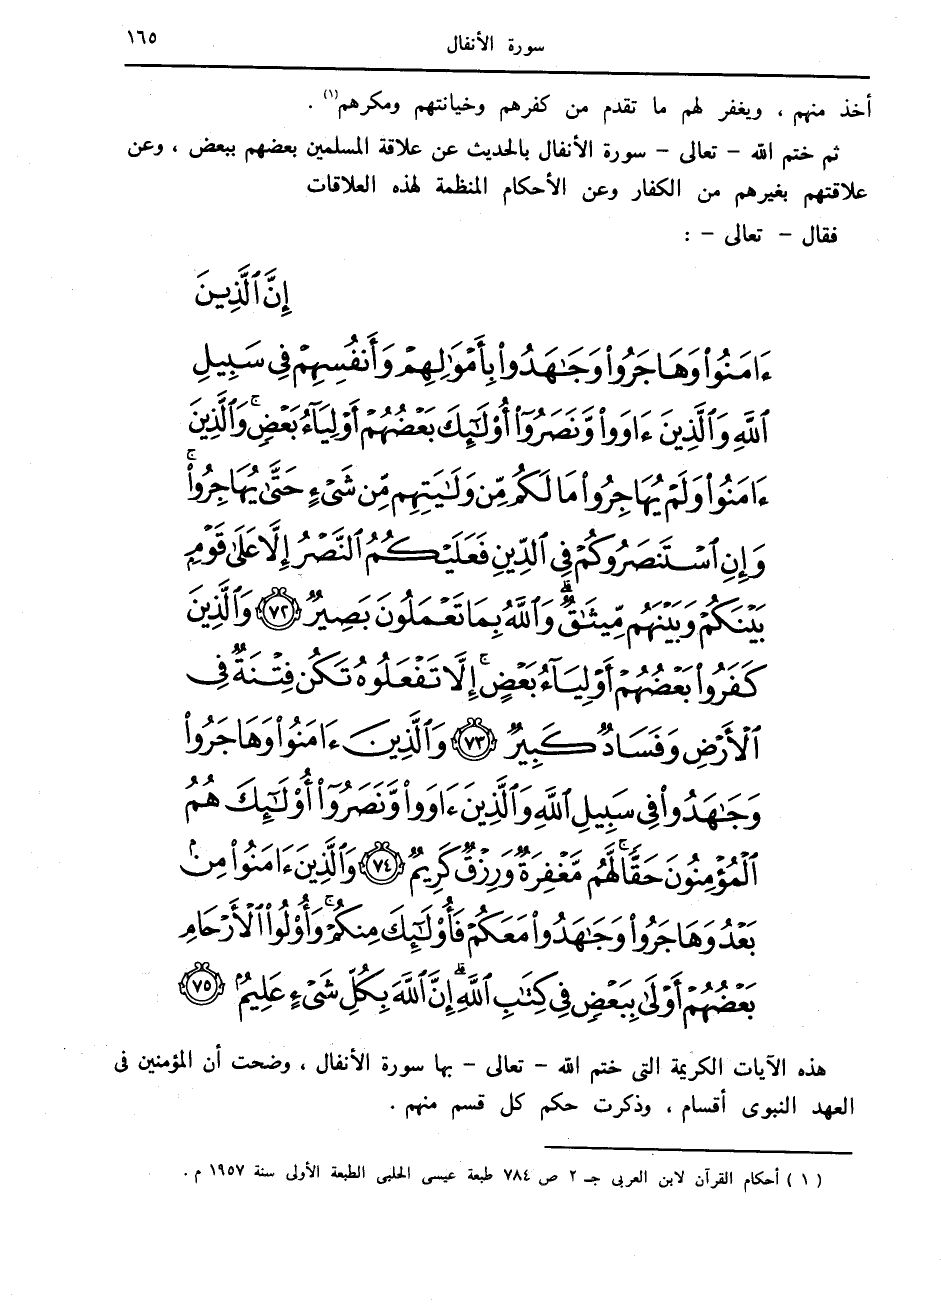 سورة الأنفال ١٦٥
أخذ منهم ، ويغفر لهم ما تقدم من كفرهم وخيانتهم ومكرهم(١) .
ثم ختم الله – تعالى – سورة الأنفال بالحديث عن علاقة المسلمين بعضهم ببعض ، وعن
علاقتهم بغيرهم من الكفار وعن الأحكام المنظمة لهذه العلاقات
فقال – تعالى – :
إِنَّ ٱلَّذِينَ
ءَامَنُوا۟ وَهَاجَرُوا۟ وَجَـٰهَدُوا۟ بِأَمْوَٰلِهِمْ وَأَنفُسِهِمْ فِى سَبِيلِ
ٱللَّهِ وَٱلَّذِينَ ءَاوَوا۟ وَّنَصَرُوٓا۟ أُو۟لَـٰٓئِكَ بَعْضُهُمْ أَوْلِيَآءُ بَعْضٍۚ وَٱلَّذِينَ
ءَامَنُوا۟ وَلَمْ يُهَاجِرُوا۟ مَا لَكُم مِّن وَلَـٰيَتِهِم مِّن شَىْءٍ حَتَّىٰ يُهَاجِرُوا۟ۚ
وَإِنِ ٱسْتَنصَرُوكُمْ فِى ٱلدِّينِ فَعَلَيْكُمُ ٱلنَّصْرُ إِلَّا عَلَىٰ قَوْمٍۭ
بَيْنَكُمْ وَبَيْنَهُم مِّيثَـٰقٌۗ وَٱللَّهُ بِمَا تَعْمَلُونَ بَصِيرٌ ﴿٧٢﴾ وَٱلَّذِينَ
كَفَرُوا۟ بَعْضُهُمْ أَوْلِيَآءُ بَعْضٍۚ إِلَّا تَفْعَلُوهُ تَكُن فِتْنَةٌ فِى
ٱلْأَرْضِ وَفَسَادٌ كَبِيرٌ ﴿٧٣﴾ وَٱلَّذِينَ ءَامَنُوا۟ وَهَاجَرُوا۟
وَجَـٰهَدُوا۟ فِى سَبِيلِ ٱللَّهِ وَٱلَّذِينَ ءَاوَوا۟ وَّنَصَرُوٓا۟ أُو۟لَـٰٓئِكَ هُمُ
ٱلْمُؤْمِنُونَ حَقًّاۚ لَّهُم مَّغْفِرَةٌ وَرِزْقٌ كَرِيمٌ ﴿٧٤﴾ وَٱلَّذِينَ ءَامَنُوا۟ مِنۢ
بَعْدُ وَهَاجَرُوا۟ وَجَـٰهَدُوا۟ مَعَكُمْ فَأُو۟لَـٰٓئِكَ مِنكُمْۚ وَأُو۟لُوا۟ ٱلْأَرْحَامِ
بَعْضُهُمْ أَوْلَىٰ بِبَعْضٍ فِى كِتَـٰبِ ٱللَّهِۗ إِنَّ ٱللَّهَ بِكُلِّ شَىْءٍ عَلِيمٌۢ ﴿٧٥﴾
هذه الآيات الكريمة التى ختم الله – تعالى – بها سورة الأنفال ، وضحت أن المؤمنين فى
العهد النبوى أقسام ، وذكرت حكم كل قسم منهم .
( ١ ) أحكام القرآن لابن العربى جـ ٢ ص ٧٨٤ طبعة عيسى الحلبى الطبعة الأولى سنة ١٩٥٧ م .